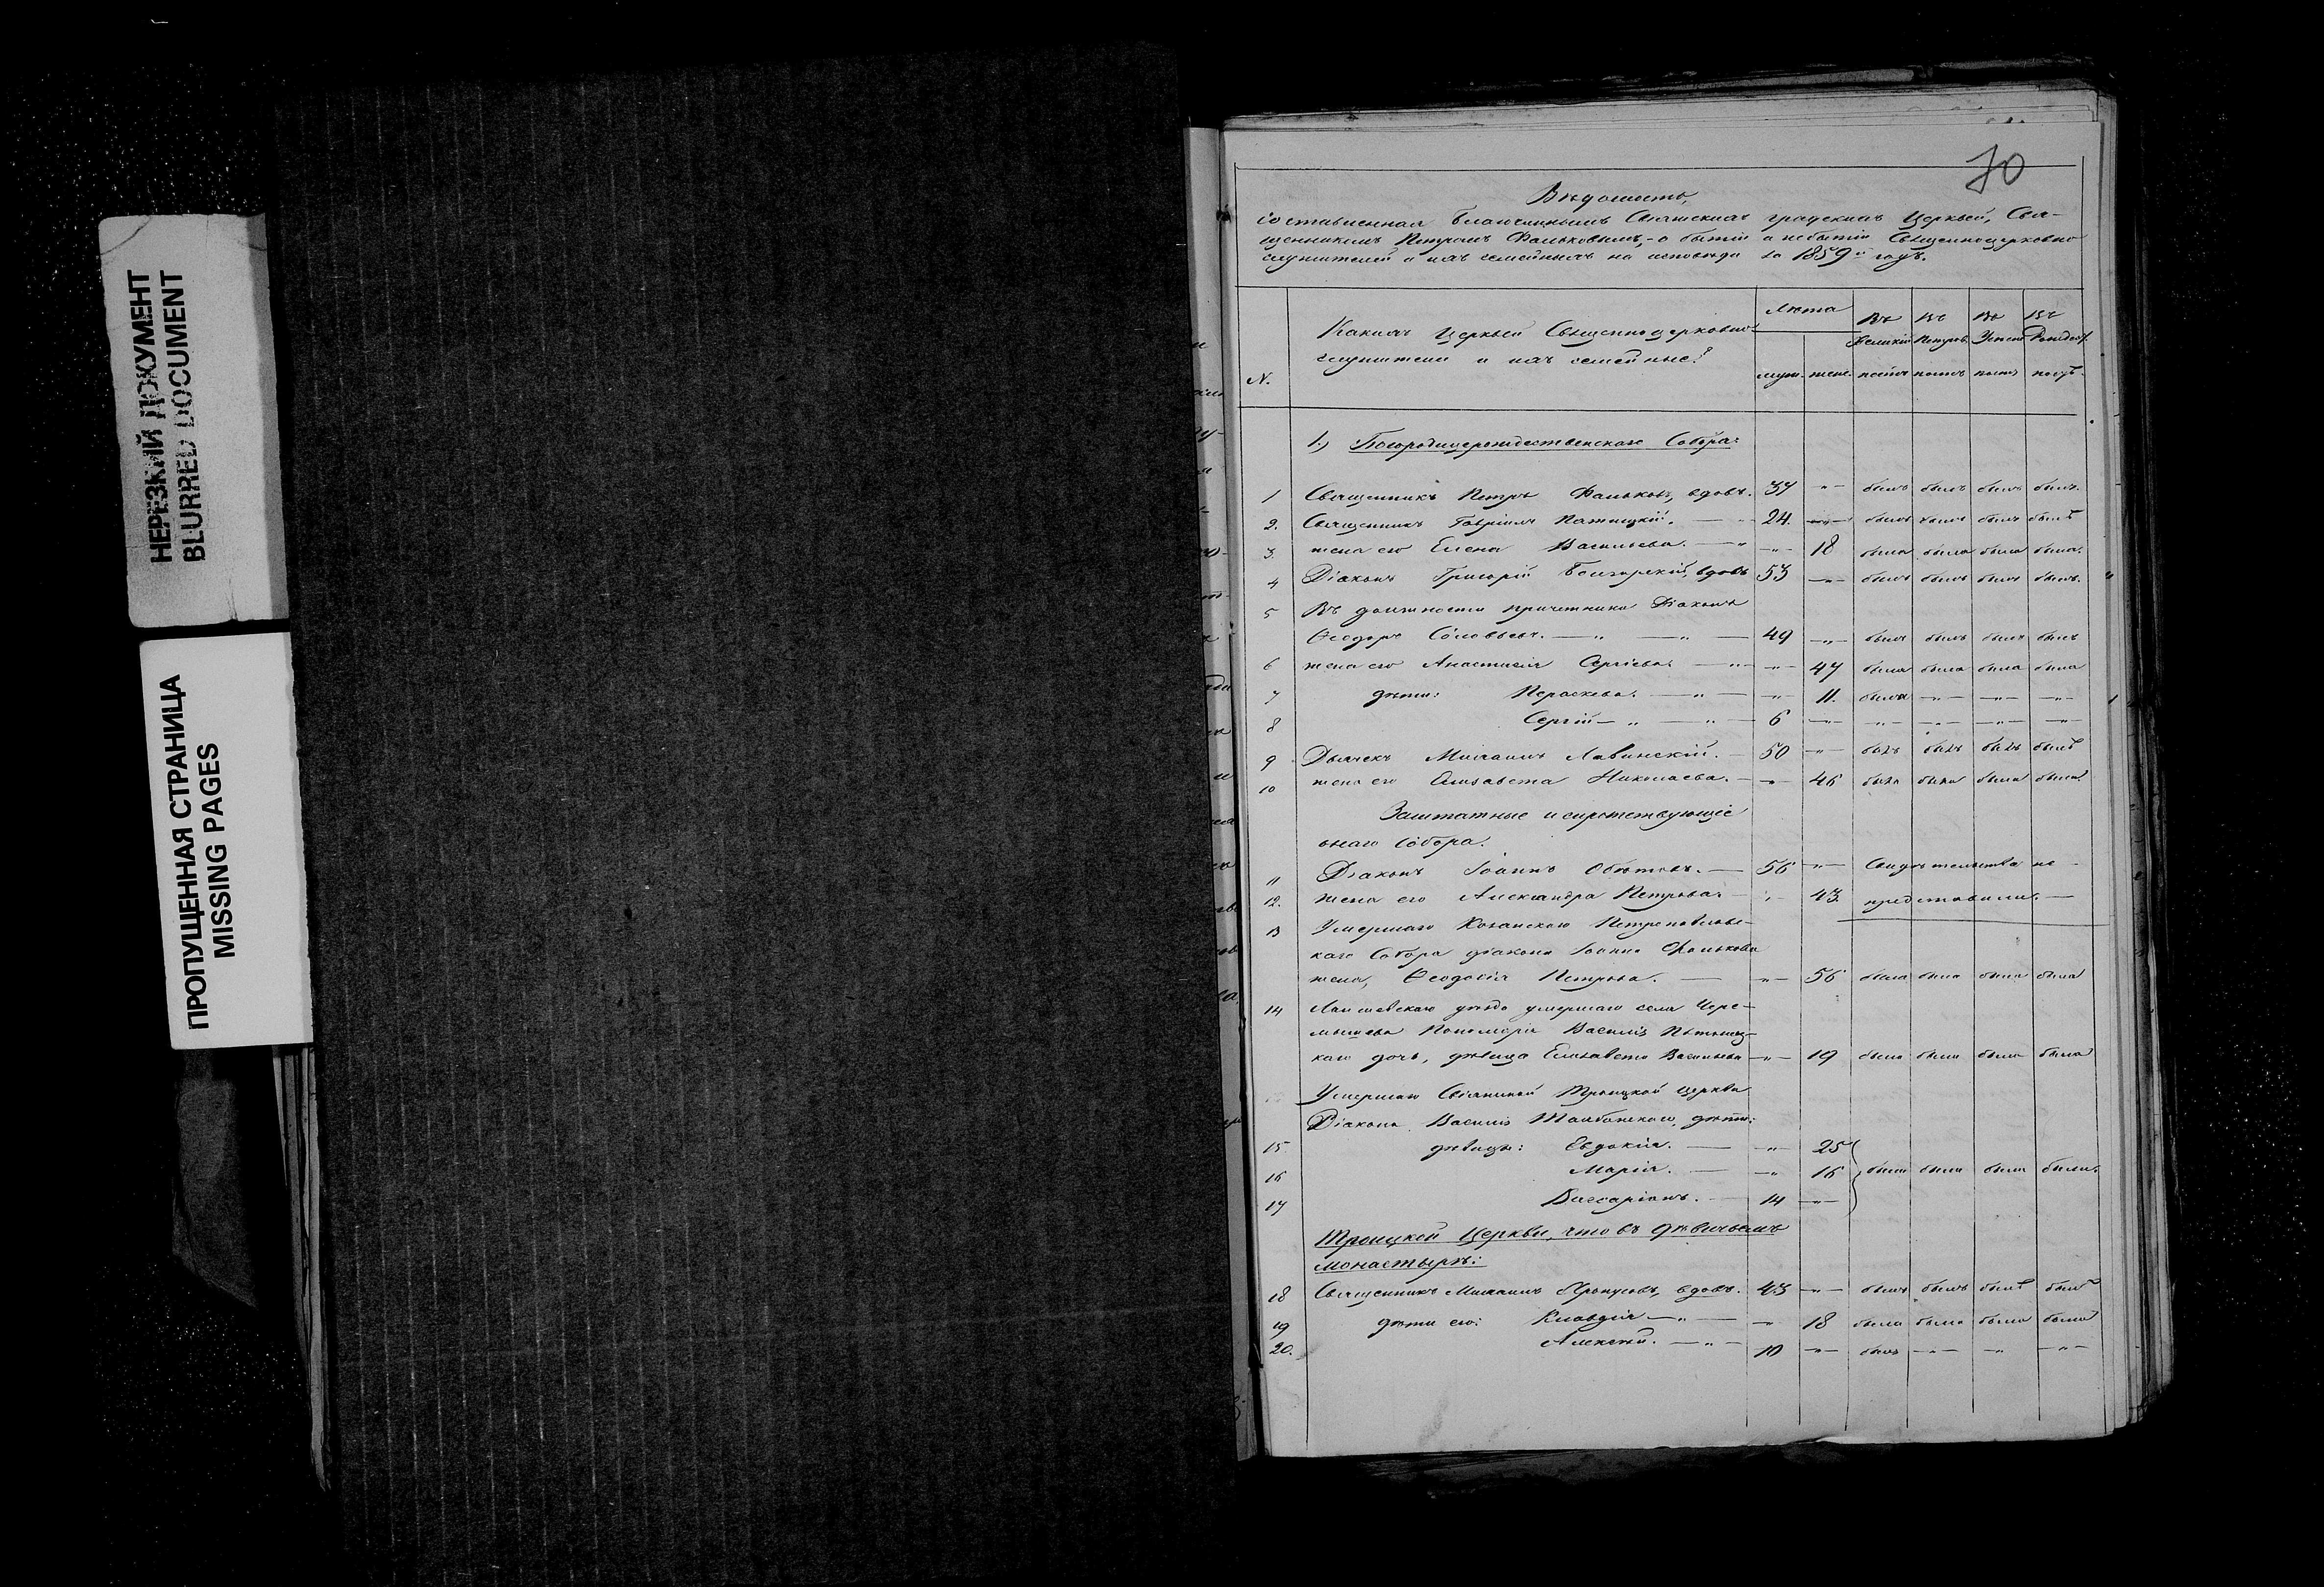 НЕРЕЗКИЙ ДОКУМЕНТ
BLURRED DOCUMENT
ПРОПУЩЕННАЯ СТРАНИЦА
MISSING PAGES
70
Вѣдомость,
составленная Благочиннымъ Свіяжскихъ градскихъ Церквей, Свя-
щенникомъ Петромъ Фальковымъ,- о бытіи и небытіи Священноцерковно
служителей и ихъ семейныхъ на исповѣди за 1859й годъ.
N. Какихъ Церквей Священноцерковно- Лѣта Въ Въ Въ Въ
служители и ихъ семейные? Великій Петров. Успен Рождест.
муж. жен. постъ постъ постъ постъ.
1.) Богородицерождественскаго Собора:
1 Священникъ Петръ Фальковъ, вдовъ. 37 -„- былъ былъ былъ былъ.
2. Священникъ Гавріилъ 24. -„- былъ былъ былъ былъ
3. жена его Елена Васильева. -„- 18 была была была была.
4 Діаконъ Григорій Болгарскій, вдовъ 53 -„- былъ былъ былъ былъ.
5 Въ должности причетника Діаконъ
Ѳеодоръ Соловьевъ. 49 -„- былъ былъ былъ былъ
6 жена его Анастасія Сергіева. -„- 47 была была была была
7 дѣти: Параскева. -„- 11. была -„- -„- -„-
8 Сергій 6 -„- -„- -„- -„- -„-
9 Дьячекъ Михаилъ Лавинскій. 50 -„- былъ былъ былъ былъ
10 жена его Елизавета Николаева. -„- 46 была была была была.
Заштатные и сиротствующіе
онаго Собора.
11 Діаконъ Іоаннъ Обѣтовъ. 56 -„- Свидѣтельства не
12. жена его Александра Петрова -„- 43 представили.
13 Умершаго Казанскаго Петропавловс-
каго Собора діакона Іоанна Фалькова
жена, Ѳеодосія Петрова. -„- 56 была была была была
14 Лаишевскаго уѣзда умершаго села Чере-
мышева Пономаря Василія
каго дочь, дѣвица Елизавета Васильева -„- 19 была была была была
Умершаго Свіяжской Троицкой церкви
Діакона Василія дѣти:
15 дѣвицы: Евдокія. -„- 25
16 Марія. -„- 16 были были были были.
17 Виссаріонъ. 14 -„-
Троицкой Церкви, что въ дѣвичьемъ
монастырѣ:
18 Священникъ Михаилъ вдовъ. 43 -„- былъ былъ былъ былъ
19 дѣти его: Клавдія -„- 18 была была была была
20. Алексѣй. 10 -„- былъ -„- -„- -„-